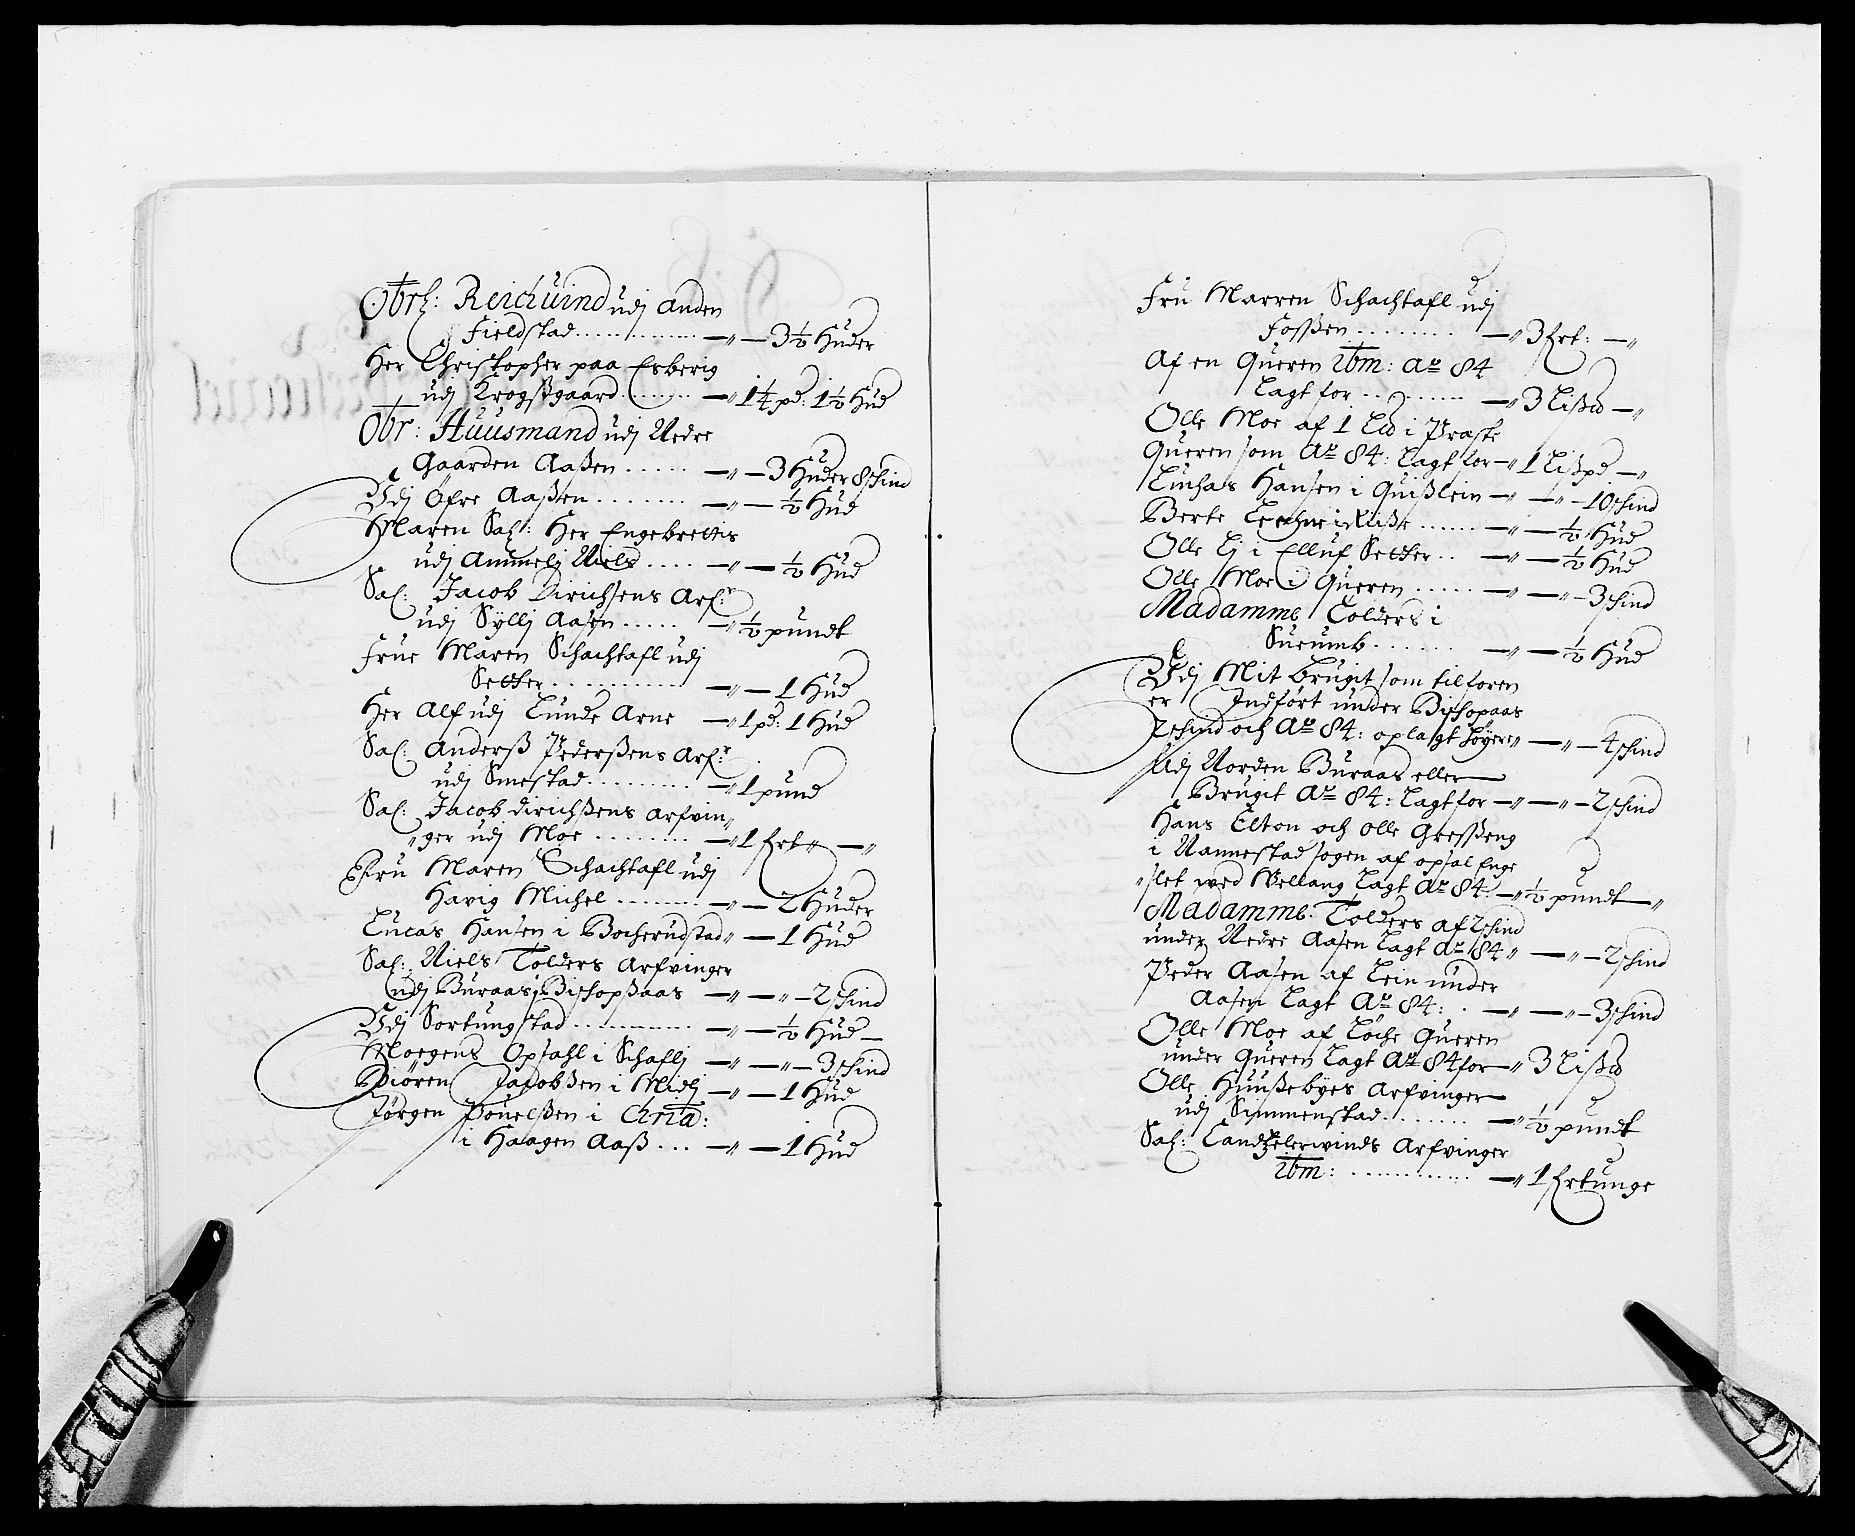 Obrl: Reichwind udj Anden
Fieldstad ............ —〃— 3½ Huder
Her Christopher paa Esberig
udj Krogßgaard ........ —〃 1¼ pd: 1½ Hud
Obr: Huusmand udj Nedre
Gaarden Aaßen ..... —〃— 3 Huder 8 schind
Udj Öfre Aaßen ........ —〃— ½ Hud
Maren Sal: Her Engebrettis
udj Ammelj Niels .... —〃— ½ Hud
Sal: Jacob Dirichsens Arf:r
udj Syllj Aasen ..... —〃 ½ pundt
Frue Maren Schachtafl udj
Setter ............ —〃— 1 Hud
Her Alf udj Lunde Arne —〃 1 pd: 1 Hud
Sal: Anderß Pederßens Arf:r
udj Smestad ......... —〃 1 pund
Sal: Jacob Dirichßens Arfvin〃
〃ger udj Moe ......... —〃 1 Ert〃 —〃
Fru Maren Schachtafl udj
Havig Michel ........ —〃— 2 Huder
Lucas Hansen i Bocherudstad〃 — 1 Hud
Sal: Niels Tolders Arfvinger
udj Buraas, Bischopßaas —〃—〃— 2 schind
Udj Sortungstad ............ —〃— ½ Hud —
Moegens Opsahl i Schaflj —〃—〃— 3 schind
Biören Jacobßen i Midlj —〃— 1 Hud
Jörgen Pouelßen i Chria:
i Haagen Aaß ... —〃— 1 Hud
Fru Marren Schachtafl udj
Foßen ......... —〃 3 Ert: —〃
Af en Queren ibm: Ao 84
Lagt for .......... —〃 3 Lißd —〃
Olle Moe af 1 Ld i Praste
Queren som Ao 84: Lagt for —〃 1 Lißpd —〃
Luchas Hansen i Quißlein —〃—〃— 10 schind
Berte i Riiße ...... —〃— ½ Hud
Olle Lj i Elluf Setter .. —〃— ½ Hud
Olle Moe i Queren ...... —〃—〃— 3 schind
Madamme Tolders i
Sueumb ....... —〃— ½ Hud
Udj Mit Brugit som tilforen
er Indfört under Bischopaas
2 schind och Ao 84: oplagt höyere〃—〃— 4 schind
Udj Norden Buraas eller —
Brugit Ao 84: Lagt for —〃—〃— 2 schind
Hans Elton och Olle Greßeng
i Nannestad sogen af opsal Enge
〃slet ved Wellang Lagt Ao 84 —〃 ½ pundt —〃
Madamme: Tolders af 2 schind
under Nedre Aasen Lagt Ao 84 〃—〃— 2 schind
Peder Aasen af Lein under
Aasen Lagt Ao 84: . —〃—〃— 3 schind
Olle Moe af Löche Queren
under Queren Lagt Ao 84 for —〃 3 Lißd
Olle Huußebyes Arfvinger —
udj Simmenstad ....... —〃 ½ pundt
Sal: Candtzelerwinds Arfvinger
ibm: ............ —〃 1 Ertunge